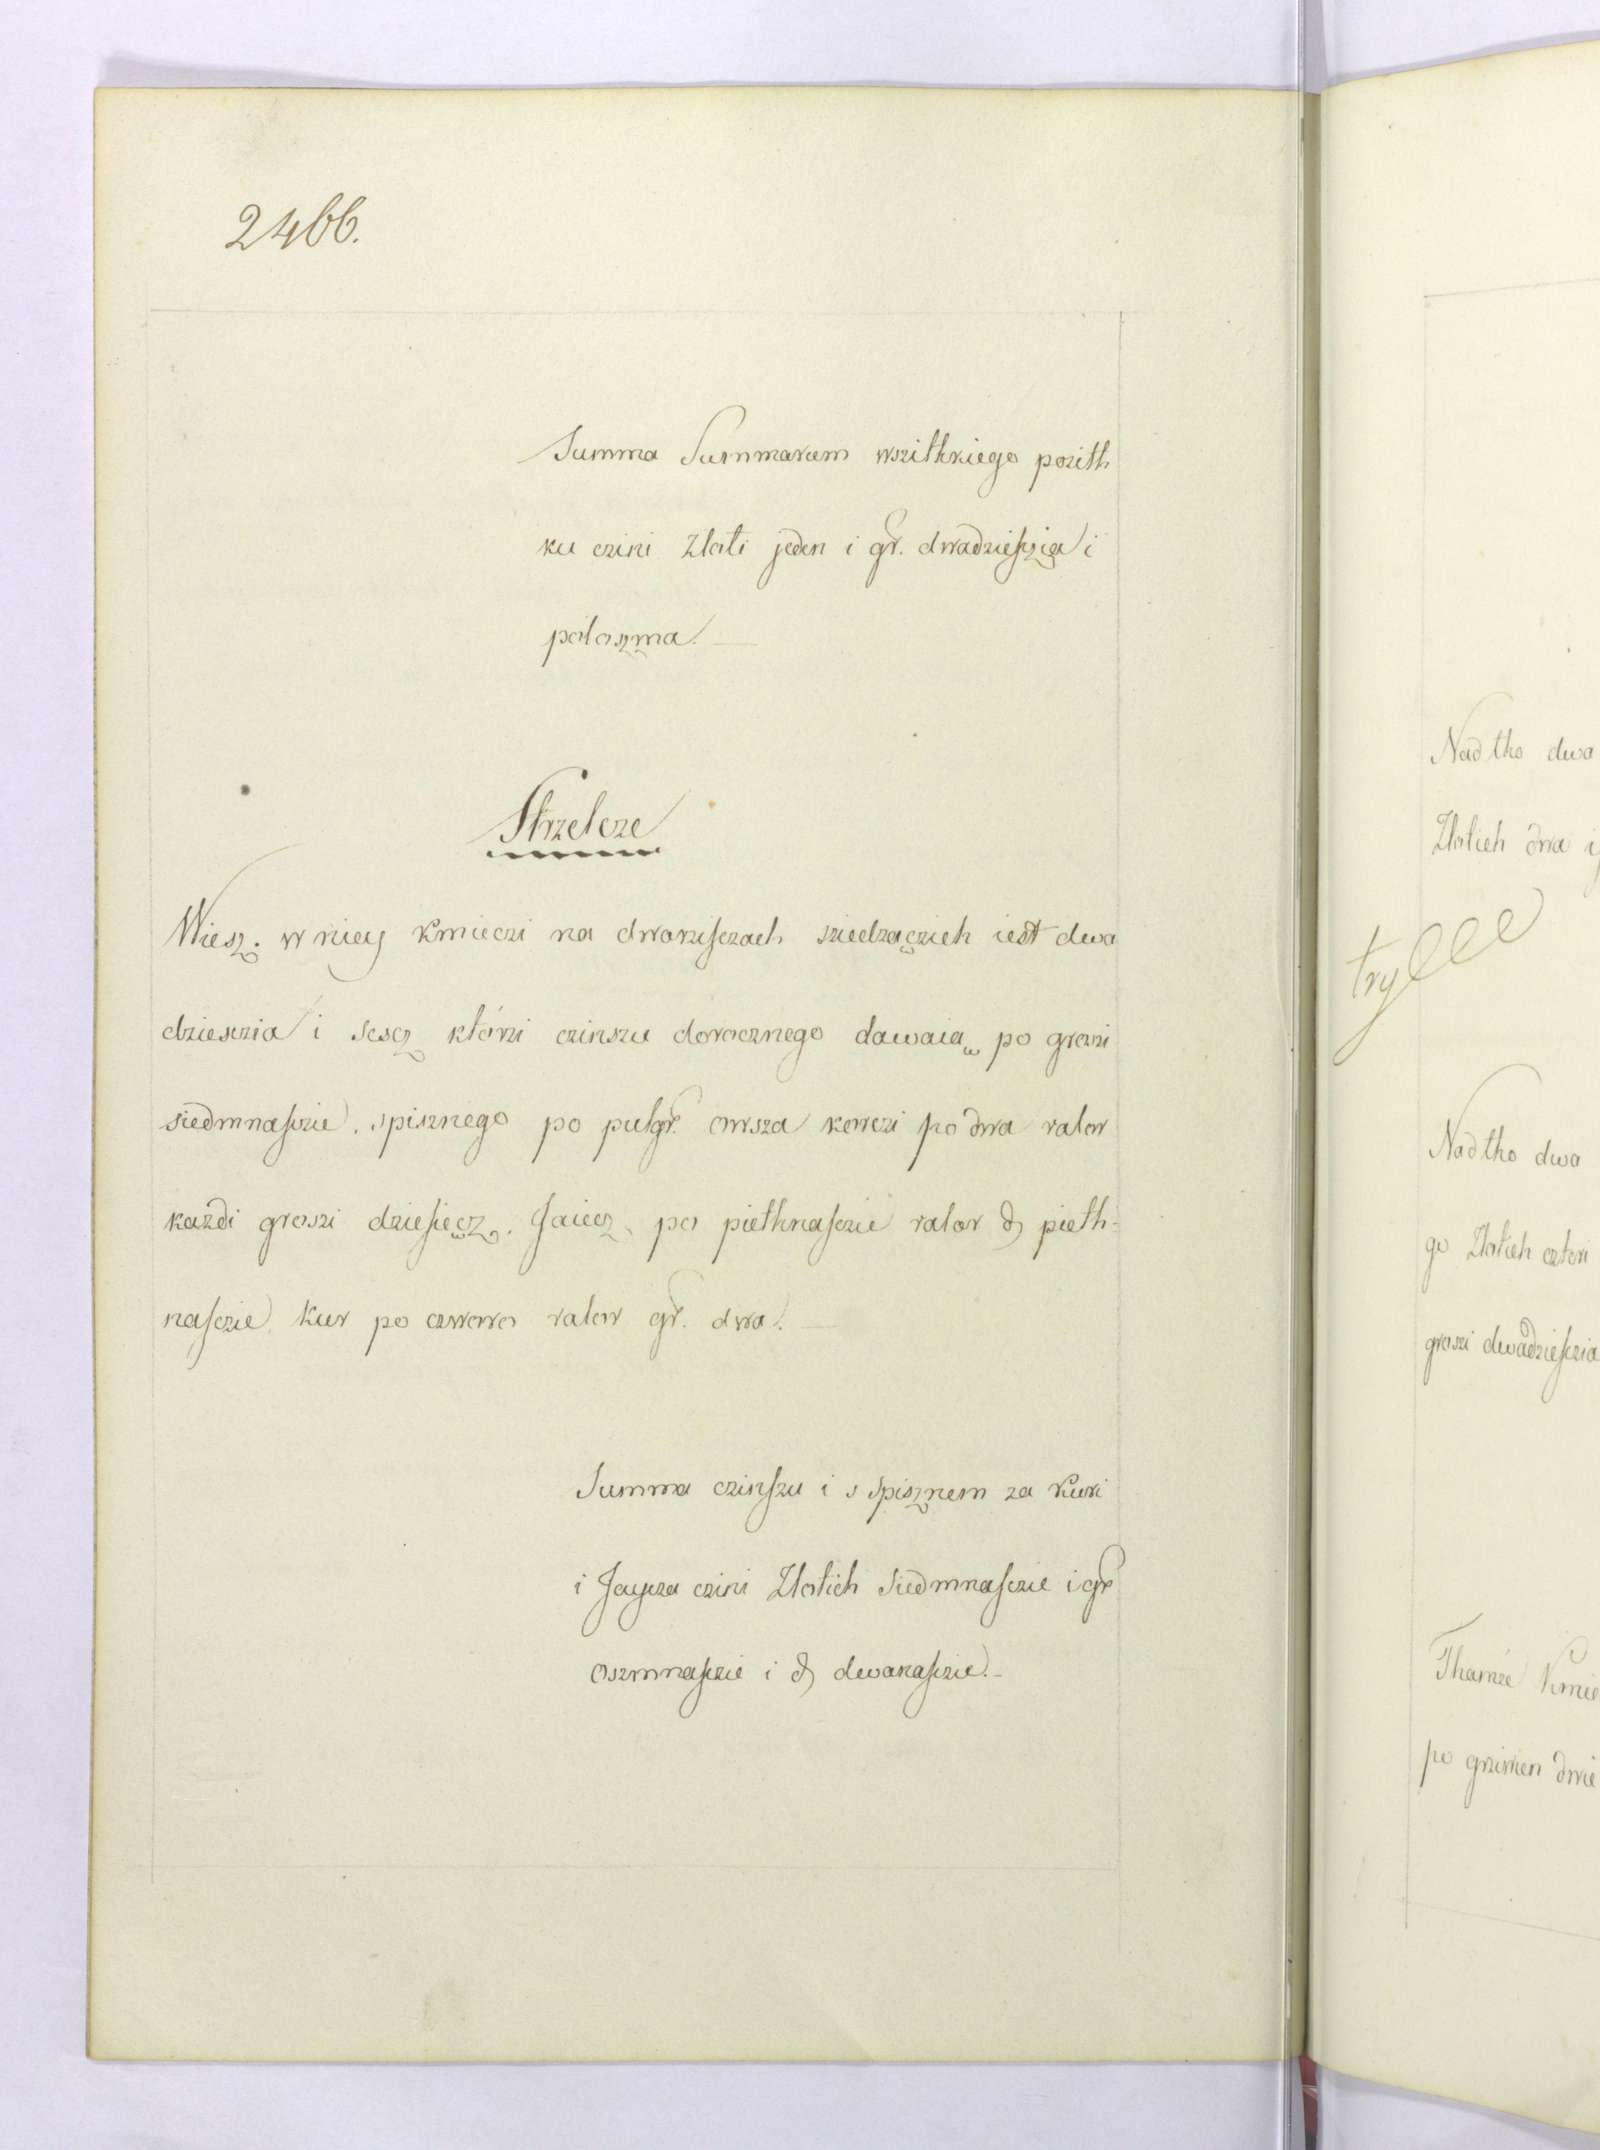 2466.
Summa Summarum wszithkiego pozith
ku czini Złoti jeden i gr. dwadziesczia i
połoszma.
Strzelcze
Wiesz. w niey Kmieczi na dworzisczach sziedzączich iest dwa
dziesczia i sescz którzi czinszu dorocznego dawaią po groszi
siedmnasczie. spisznego po pułgr. owsza korczi po dwa valor
każdi groszi dziesięcz. Jaiecz po piethnasczie valor ₰ pieth-
nasczie kur po czworo valor gr. dwa.
Summa czinszu i s spisznem za kuri
i Jaycza czini Złotich siedmnasczie i gr
oszmnasczie i ₰ dwanasczie.
Nadtho dwa
Złotich dwa i
try
Nadtho dwa
go Złotich cztori
groszi dwadziesczia
Thamże Kmie
po grziwien dwie